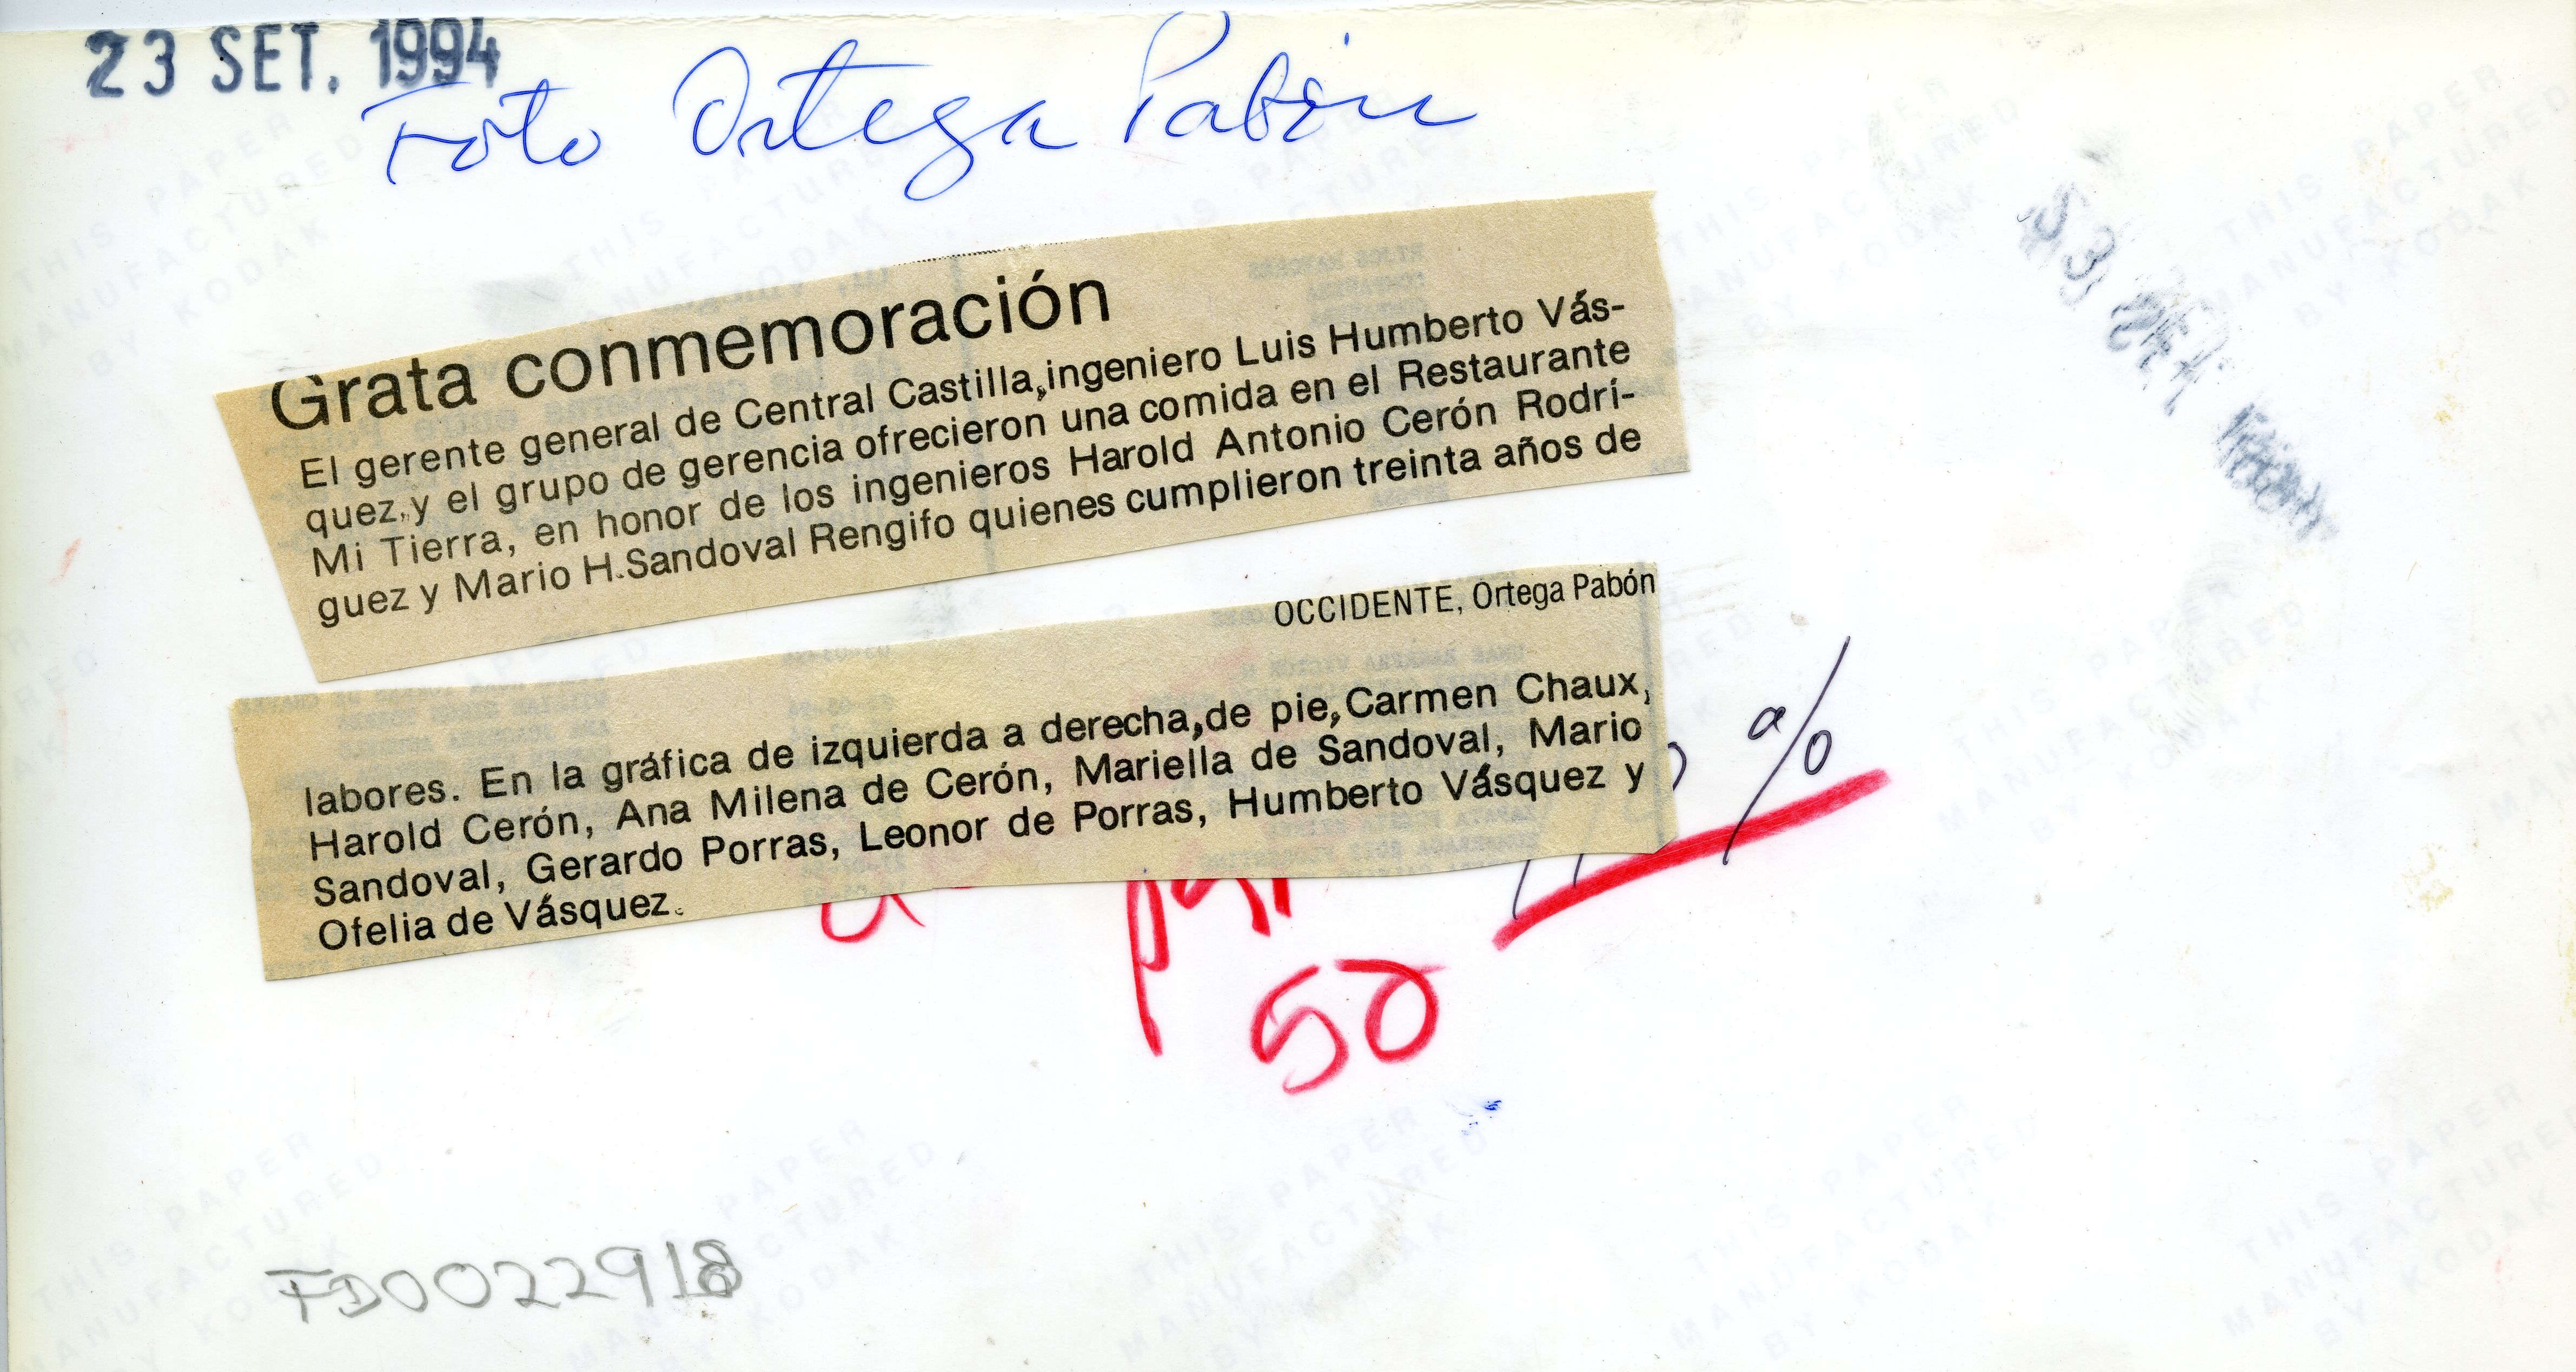 23 SET. 1994
Foto Ortega Pabón
Grata conmemoración
El gerente general de Central Castilla, ingeniero Luis Humberto Vás-
quez, y el grupo de gerencia ofrecieron una comida en el Restaurante
Mi Tierra, en honor de los ingenieros Harold Antonio Cerón Rodrí-
guez y Mario H. Sandoval Rengifo quienes cumplieron treinta años de
OCCIDENTE, Ortega Pabón
labores. En la gráfica de izquierda a derecha, de pie, Carmen Chaux,
Harold Cerón, Ana Milena de Cerón, Mariella de Sandoval, Mario
Sandoval, Gerardo Porras, Leonor de Porras, Humberto Vásquez y
Ofelia de Vásquez.
%
50
FD0022918
THIS PAPER
MANUFACTURED
BY KODAK